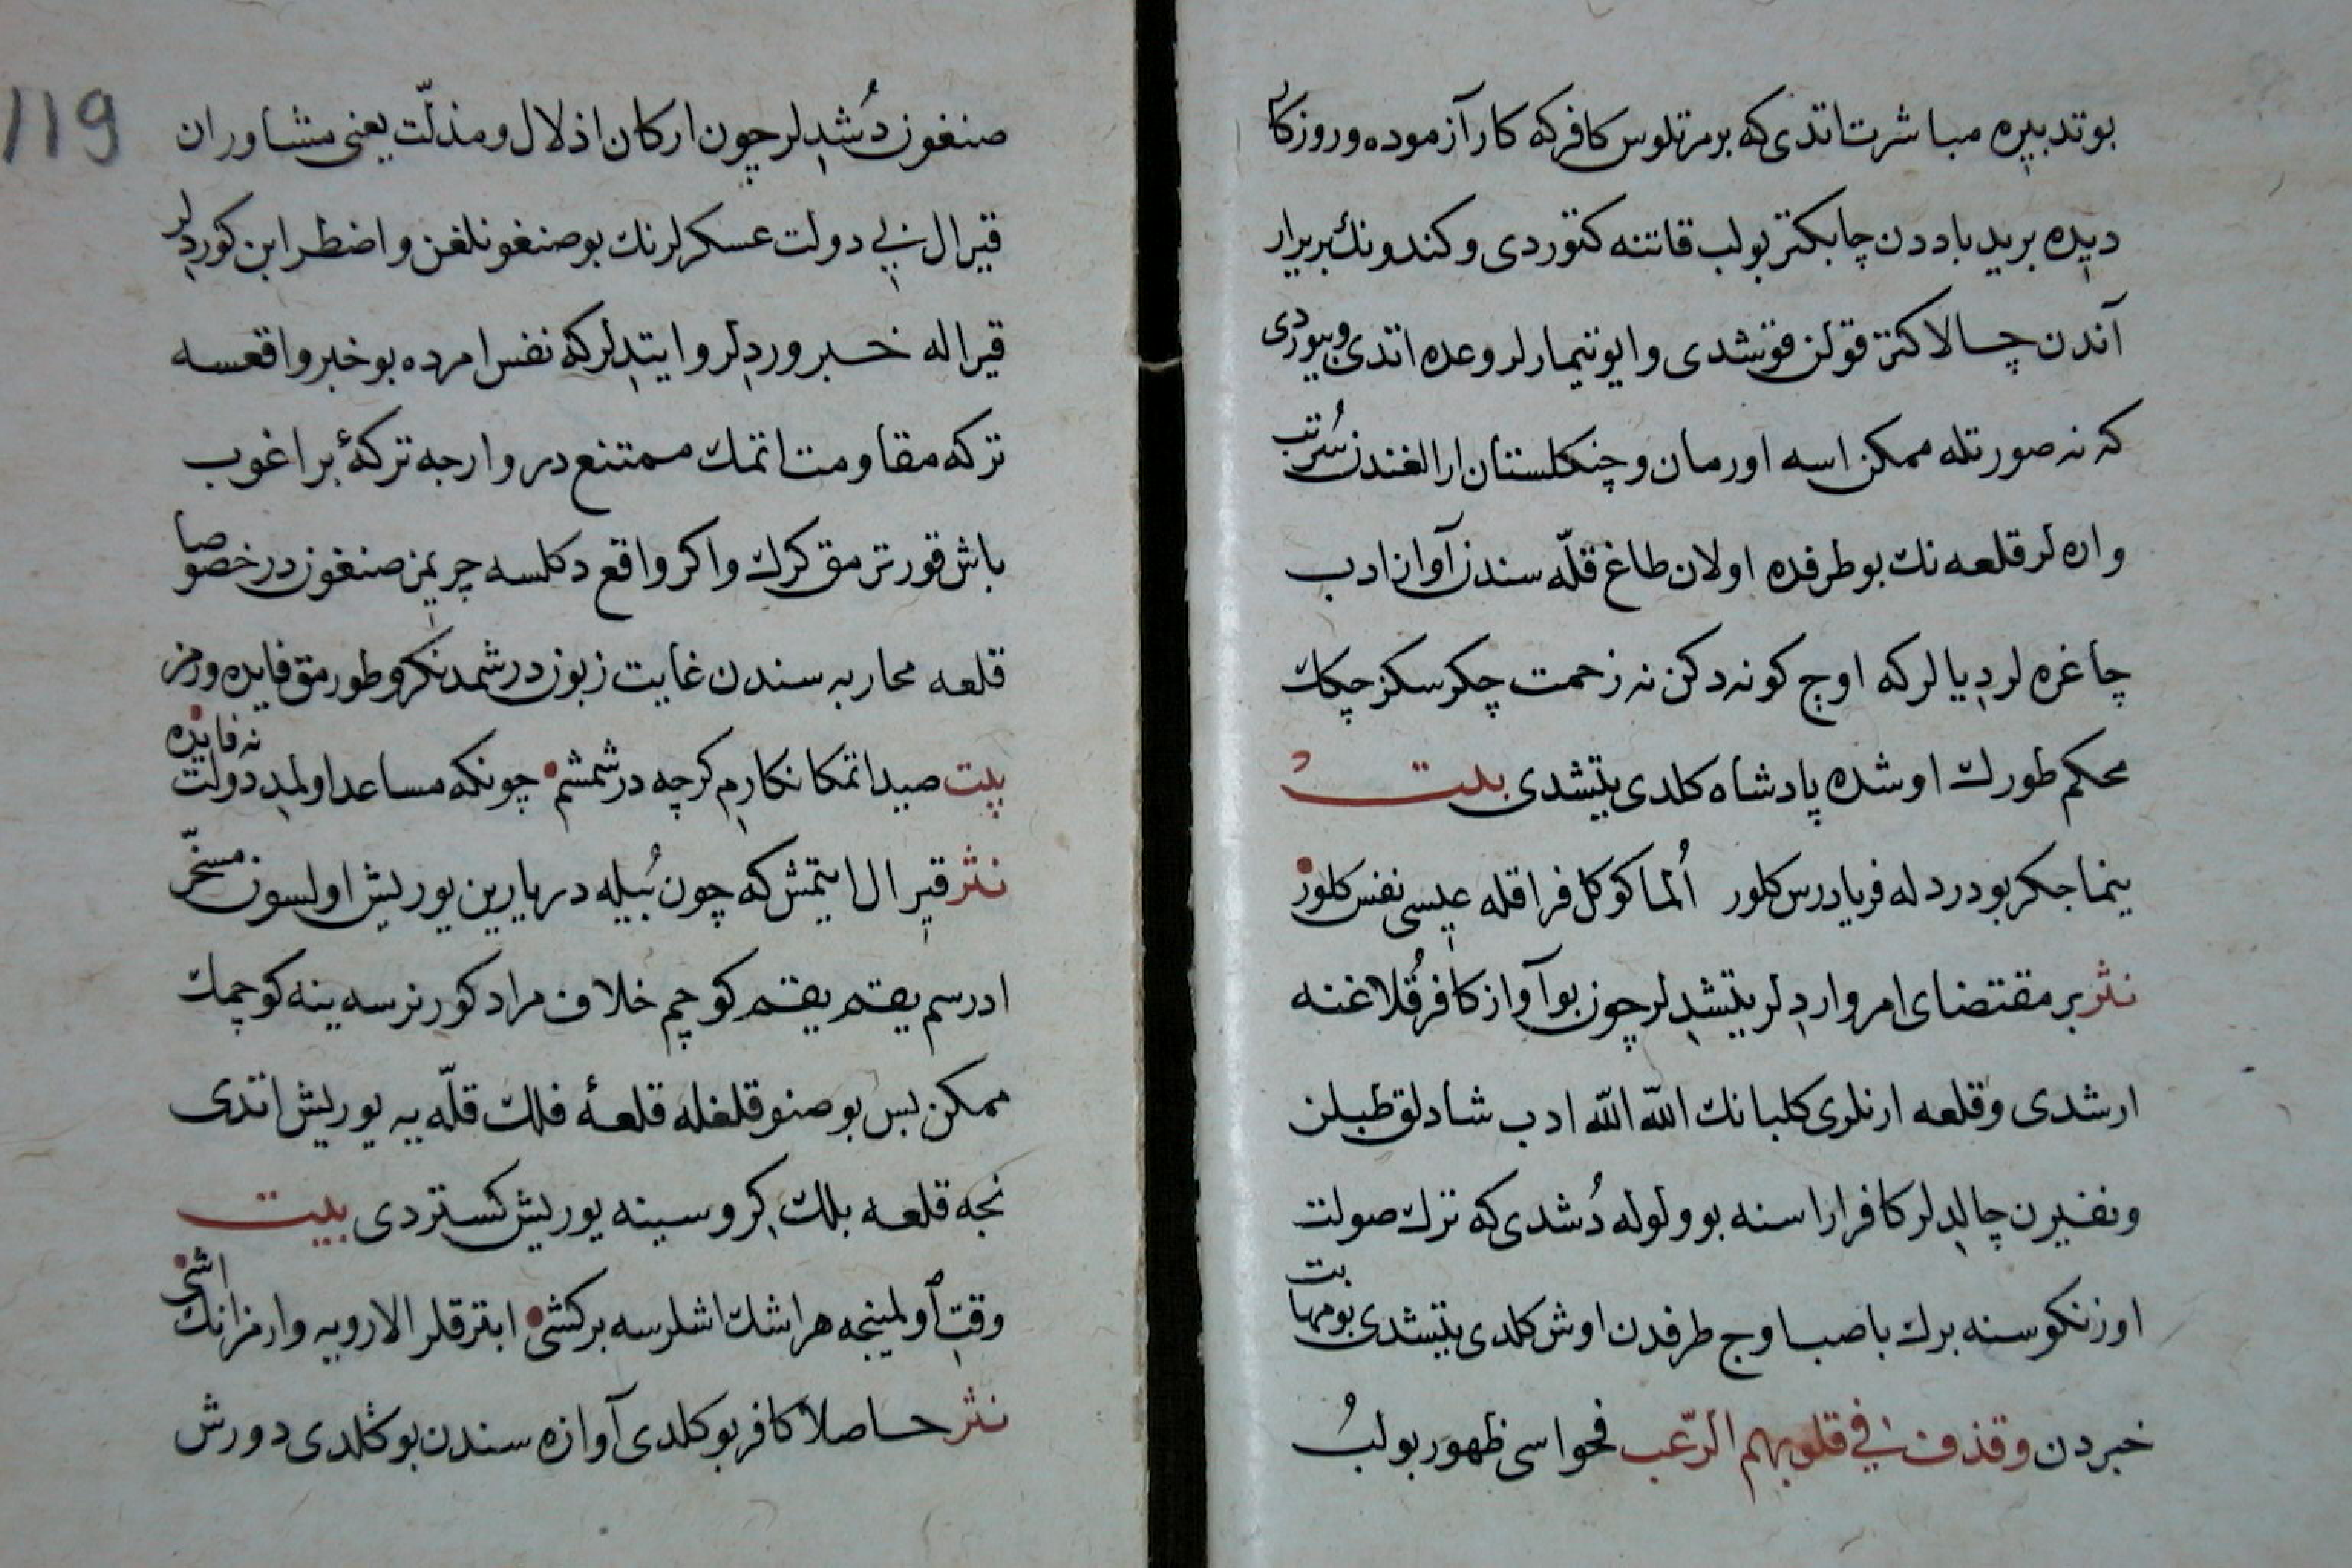 بوتدبیره مباشرت اتدی که برمرتلوس کافرکه کارآزموده وروزکار
دیده برید باددن چابکتر بولب قاتنه کتوردی وکندونك بریرار
آندن چالاکتر قولن قوشدی وایوتیمارلر وعده اتدی وبیوردی
که نه صورتله ممکن اسه اورمان وچنکلستان ارالغندن سُرتب
واره لر قلعه نك بوطرفده اولان طاغ قلّه سندن آواز ادب
چاغره لر دیالر که اوچ کونه دکن نه زحمت چکرسکز چکك
محکم طورك اوشده پادشاه کلدی یتشدی بیت
ینما جکر بودردله فریادرس کلور اُلما کوکل فراقله عیسی نفس کلور
نثر بر مقتضای امر واردلر یتشدلر چون بوآواز کافر قُلاغنه
ارشدی وقلعه ارنلری کلبانك الله الله ادب شادلق طبلن
ونفیرن چالدلر کافر اراسنه بو ولوله دُشدی که ترك صولت
اوزنکوسنه برك باصب اوچ طرفدن اوش کلدی یتشدی بومهابت
خبردن وقذف فی قلوبهم الرّعب فحواسی ظهور بولبُ
119
صنغون دُشدلر چون ارکان اذلال ومذلّت یعنی مشاوران
قیرال بی دولت عسکرلرنك بوصنغونلغن واضطرابن کوردلر
قیراله خبر وردلر وایتدلر که نفس امرده بوخبر واقعسه
ترکه مقاومت اتمك ممتنع در وارجه ترکهٔ براغوب
باش قورترمق کرك واکر واقع دکلسه چریمز صنغون در خصوصا
قلعه محاربه سندن غایت زبون در شمدنکرو طورمق فایده ورمز
بیت صید اتمکا نکارم کرچه درشمشم چونکه مساعد اولمد دولت نه فایده
نثر قیرال ایتمش که چون بُیله در یارین یوریش اولسون مسخّر
ادرسم یقتم یقتم کوچم خلاف مراد کورنرسه ینه کوچمك
ممکن بس بو صنوقلغله قلعهٔ فلك قلّه یه یوریش اتدی
نجه قلعه بلك کروسینه یوریش کستردی بیت
وقت اولمینجه هر اشك اشلرسه برکشی ابتر قلر الارویه وارمز انك اشی
نثر حاصلا کافر بوکلدی آوازه سندن بوکلدی دورش